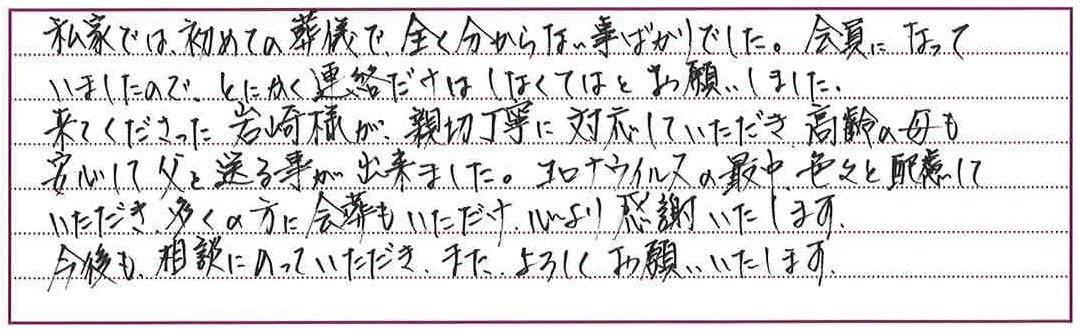 私家では、初めての葬儀で、全く分からない事ばかりでした。会員になって
いましたので、とにかく連絡だけはしなくてはとお願いしました。
来てくださった岩崎様が、親切丁寧に対応していただき高齢の母も
安心して父を送る事が出来ました。コロナウイルスの最中、色々と配慮して
いただき、多くの方に会葬もいただけ、心より感謝いたします。
今後も、相談にのっていただき、また、よろしくお願いいたします。